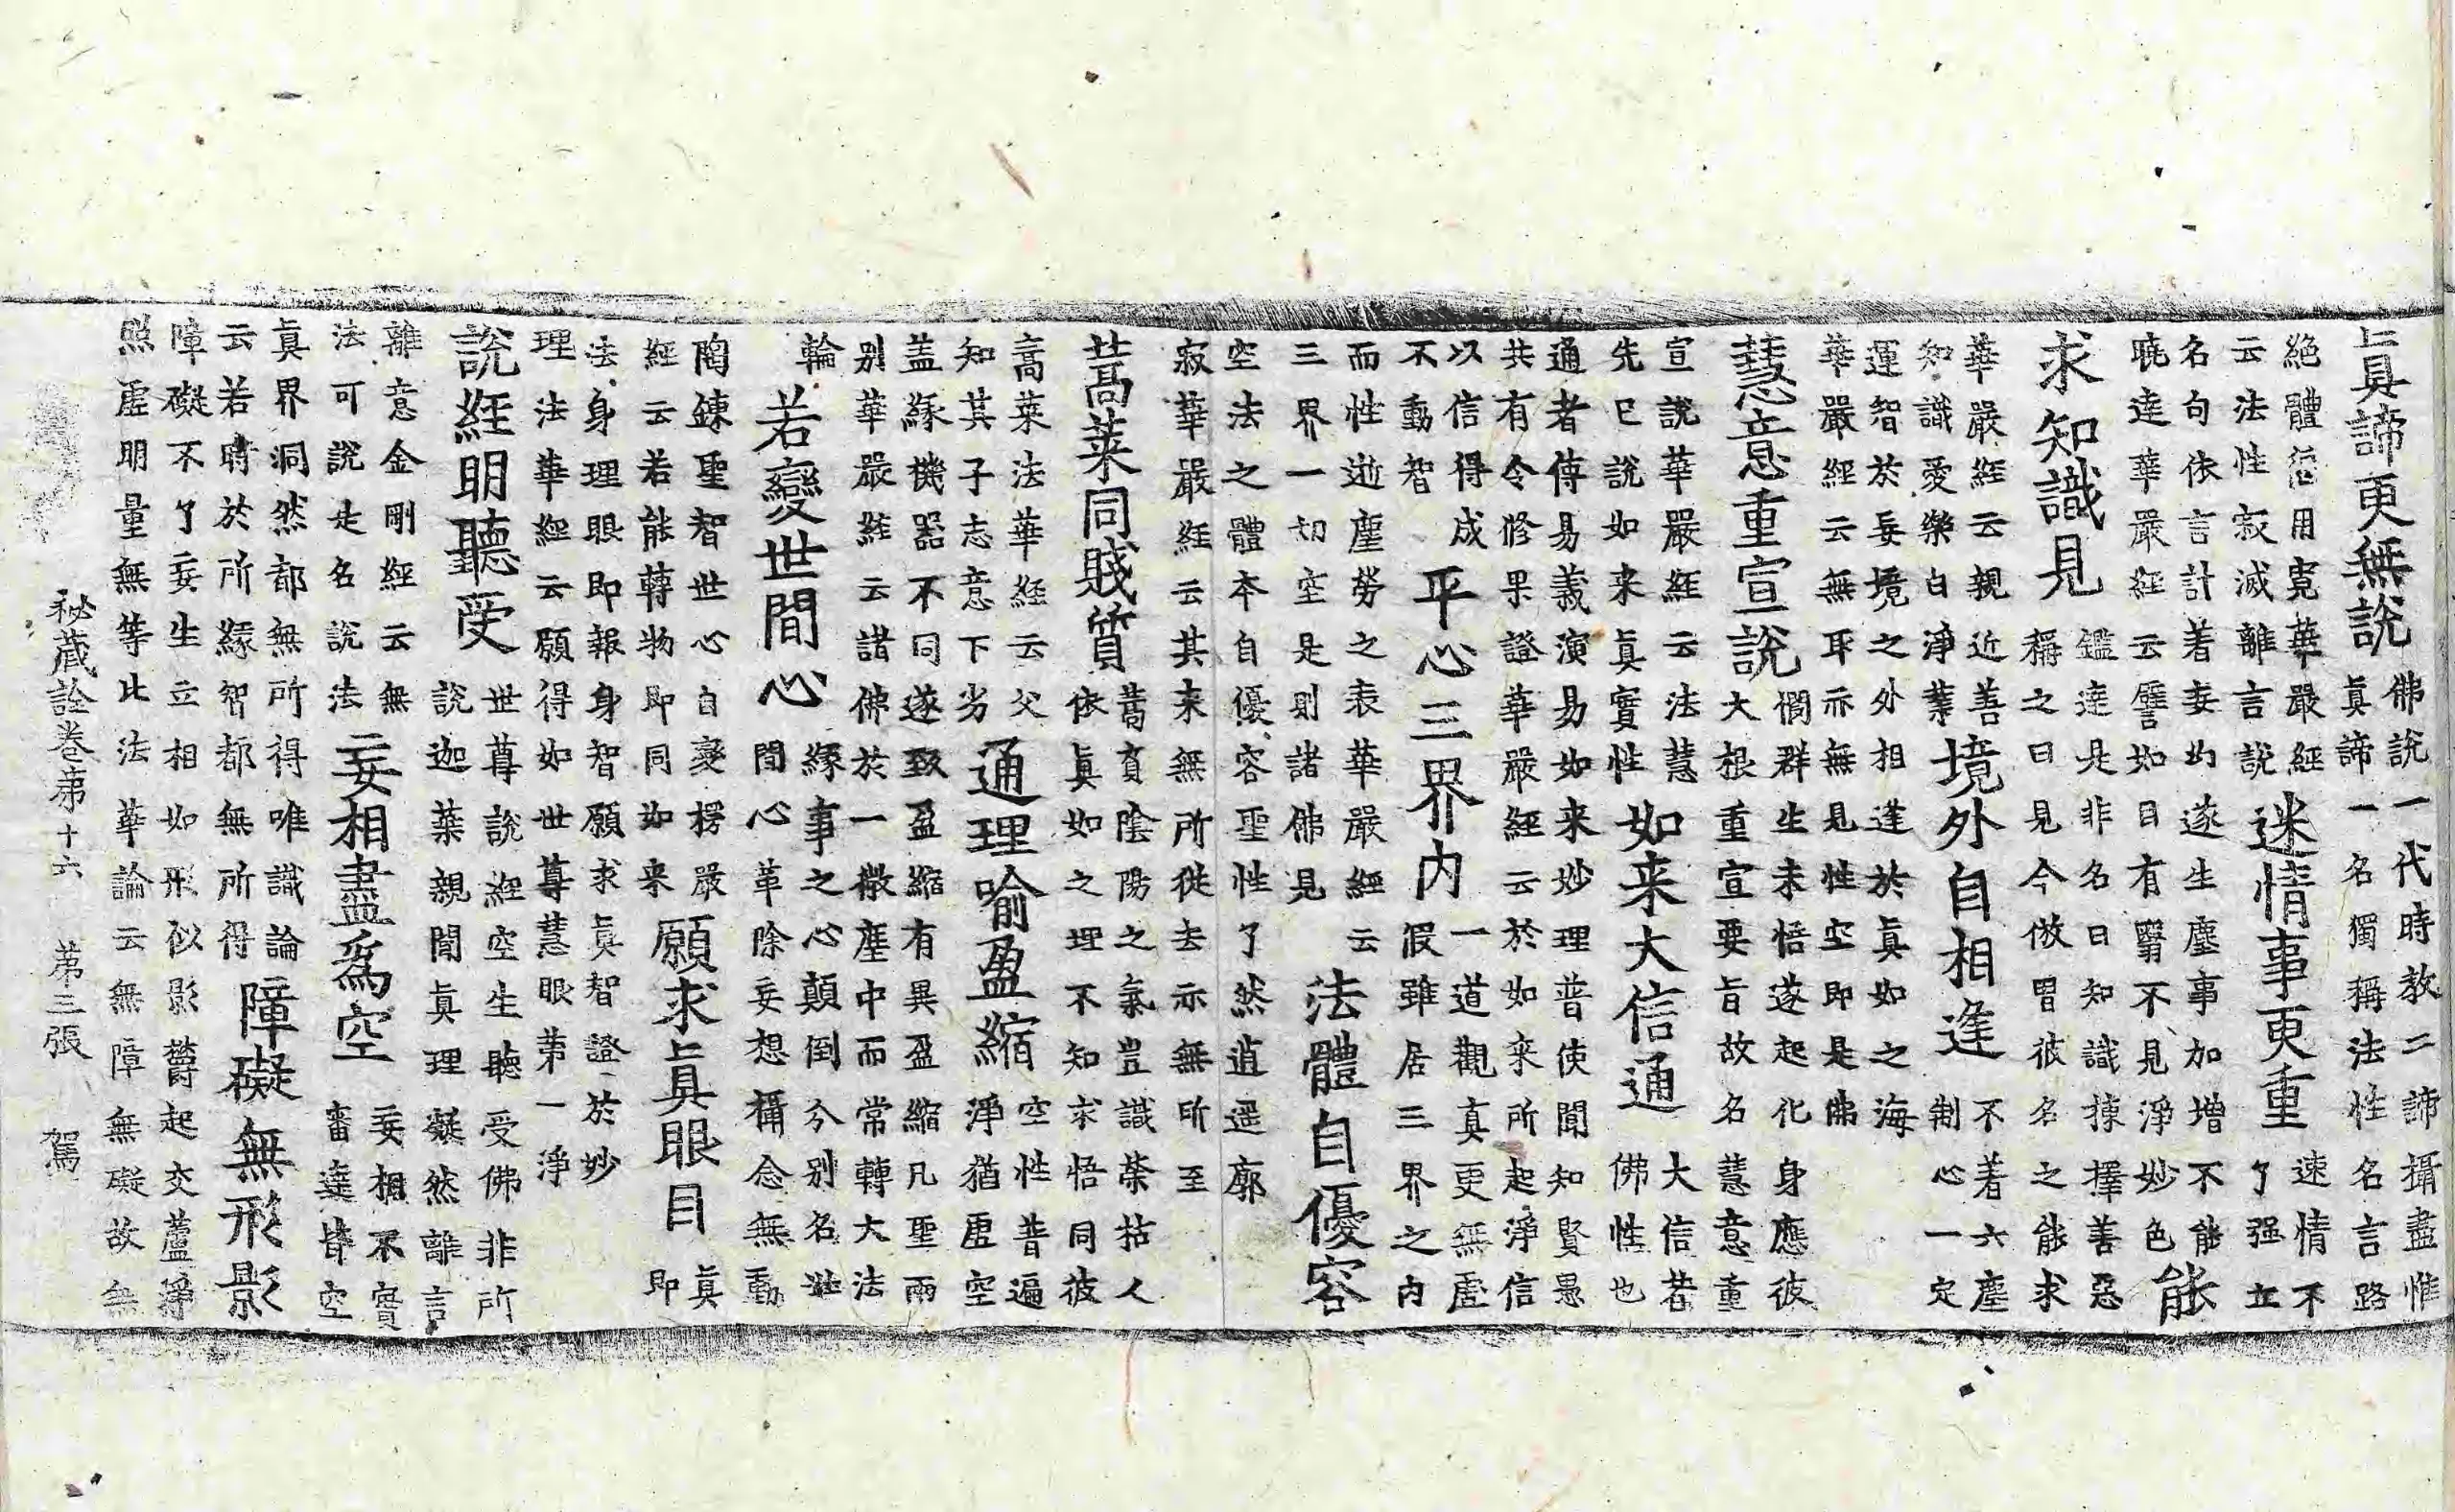 眞諦更無說
佛說一代時教二諦攝盡惟
眞諦一名獨稱法性名言路
絕體從用寛華嚴經
云法性寂滅離言說
迷情事更重
速情不
了强立
名句依言計着妄遂生塵事加增不能
曉達華嚴經云譬如目有瞖不見淨妙色
能
求知識見
鑑達是非名曰知識揀擇善惡
稱之曰見今倣習彼名之能求
華嚴經云親近善
知識愛樂白淨業
境外自相逢
不着六塵
制心一定
運智於妄境之外相逢於眞如之海
華嚴經云無耳示無見性空即是佛
慧意重宣說
憫群生未悟遂起化身應彼
大根重宣要旨故名慧意重
宣說華嚴經云法慧
先已說如来眞實性
如来大信通
大信者
佛性也
通者傳易義演易如来妙理普使聞知賢愚
共有令修果證華嚴經云於如来所起淨信
以信得成
不動智
平心三界内
一道觀真更無虛
假雖居三界之内
而性逝塵勞之表華嚴經云
三界一切空是則諸佛見
法體自優容
空法之體本自優容聖性了然逍遥廓
寂華嚴経云其来無所從去亦無所至
蒿萊同賤質
蒿賓陰陽之氣豈識榮枯人
依眞如之理不知求悟同彼
高萊法華経云父
知其子志意下劣
通理喻盈縮
空性普遍
淨猶虛空
盖緣機器不同遂致盈縮有異盈縮凡聖兩
别華嚴経云諸佛於一微塵中而常轉大法
輪
若變世間心
緣事之心顛倒分别名世
間心革除妄想攝念無動
陶鍊聖智世心自變楞嚴
經云若能轉物即同如来
願求眞眼目
眞
即
法身理眼即報身智願求眞智證於妙
理法華經云願得如世尊慧眼第一淨
說経明聽受
世尊說経空生聽受佛非所
說迦葉親聞眞理凝然離言
離意金剛經云無
法可說是名說法
妄相盡爲空
妄相不實
審達皆空
眞界洞然都無所得唯識論
云若時於所緣智都無所得
障礙無形影
障礙不了妄生立相如形似影欝起交蘆淨
照虛明量無等比法華論云無障無礙故無
秘蔵詮卷苐十六 苐三張 駕